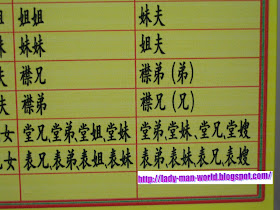 姐姐 妹夫
妹妹 姐夫
夫 襟兄 襟弟（弟）
夫 襟弟 襟兄（兄）
女 堂兄,堂弟,堂姐,堂妹 堂弟,堂妹,堂兄,堂嫂
女 表兄,表弟,表姐,表妹 表弟,表妹,表兄,表嫂
http://lady-man-world.blogspot.com/